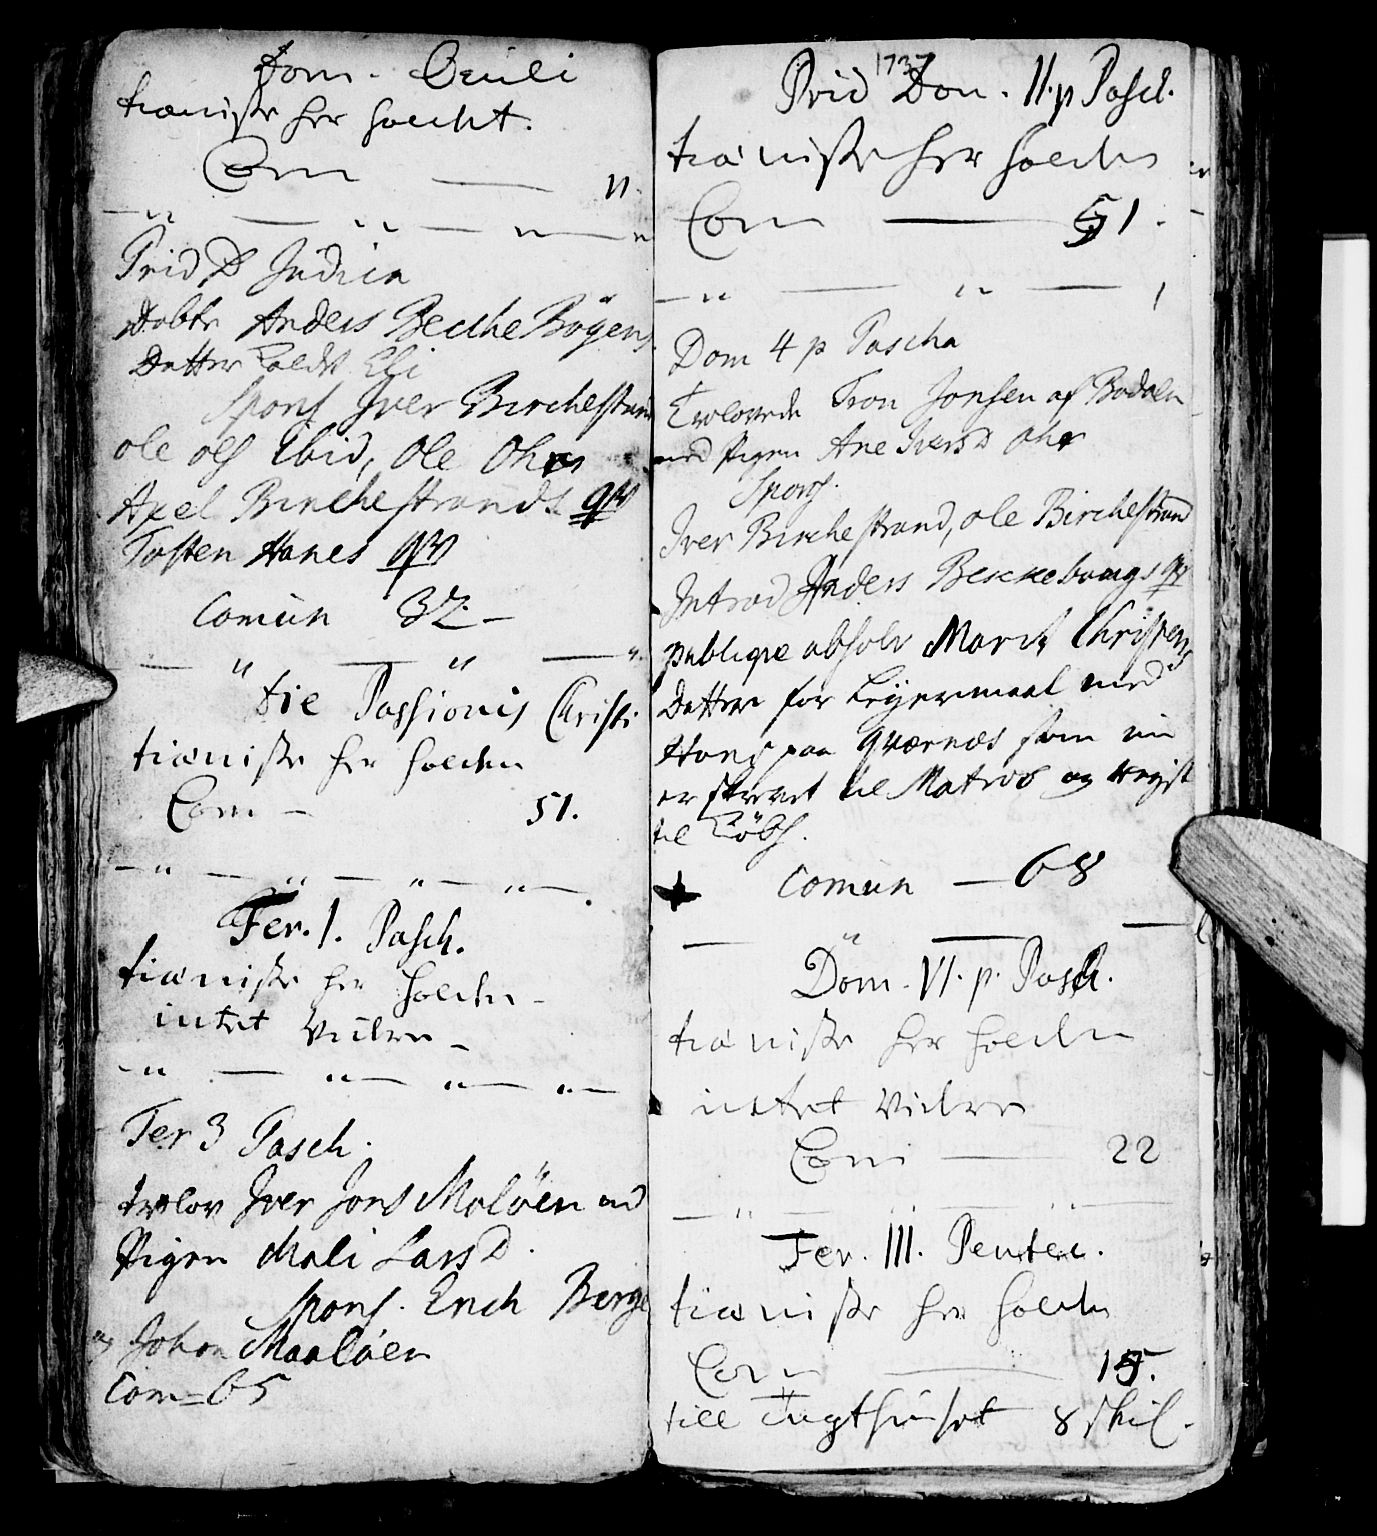 Dom. Oculi
tieniste her holdet.
Com — 11.
Prid D Judica
Døbte Anders Becche Bøgens
Datter kaldt Eli
Spons Iver Birchestrand
ole ols Ibid, Ole Ohrs
Axel Birchestrands qv
Tosten Hanes qv
Comun 32 —
die Passionis Christi
tieniste her holden
Com — 51.
Fer. 1. Pasch.
tieniste her holden —
intet videre —
Fer 3 Pasch.
trolov Iver Jons Moløen med
Pigen Mali Lars D.
spons. Erich Berge
og Johan Maaløen
Com = 65
1737
Prid Dom. II. p Pasch.
tieniste her holden
Com — 51.
Dom 4 p Pascha
Trolovede Tron Jonsen af Bodalen
med Pigen Ane Ivers D Ohr
Spons.
Iver Birchestrand, ole Birchestrand
Introd Anders Beckebøngs qv
publiqve absolv Marit Christens
Datter for Leyermaal med
Hans paa Qvernæs som nu
er skrevet til Matros og reyst
til Kiøbh.
Comun — 68
Dom. VI. p. Pasch.
tieniste her holden
intet videre
Com — 22
Fer. III. Pentec.
tieniste her holden
Com — 15.
till Tugthuset 8 skil.